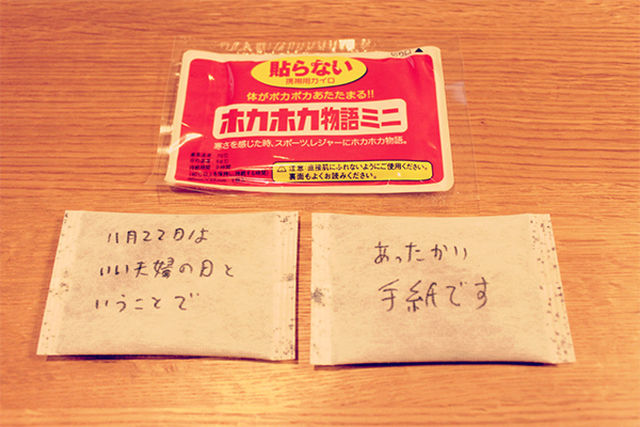 貼らない
携帯用カイロ
体がポカポカあたたまる!!
ホカホカ物語ミニ
寒さを感じた時、スポーツ、レジャーにホカホカ物語。
注意 直接肌にふれないようにご使用ください。
裏面もよくお読みください。
11月22日は
いい夫婦の日と
いうことで
あったかい
手紙です